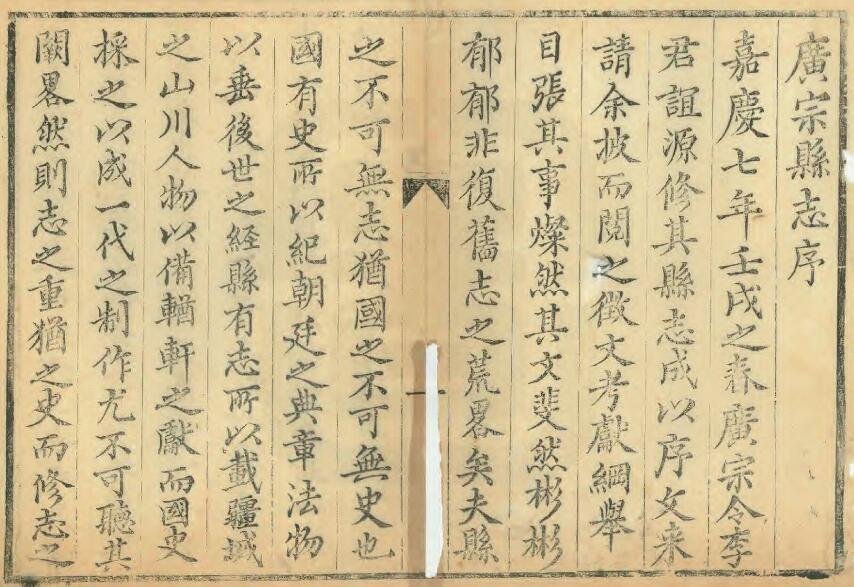 廣宗縣志序
嘉慶七年壬戌之春廣宗令李
君誼源修其縣志成以序文来
請余披而閱之徵文考獻綱舉
目張其事燦然其文斐然彬彬
郁郁非復舊志之荒畧矣夫縣
一
之不可無志猶國之不可無史也
國有史所以紀朝廷之典章法物
以垂後世之経縣有志所以載疆域
之山川人物以備輶軒之獻而國史
採之以成一代之制作尤不可聽其
闕畧然則志之重猶之史而修志之